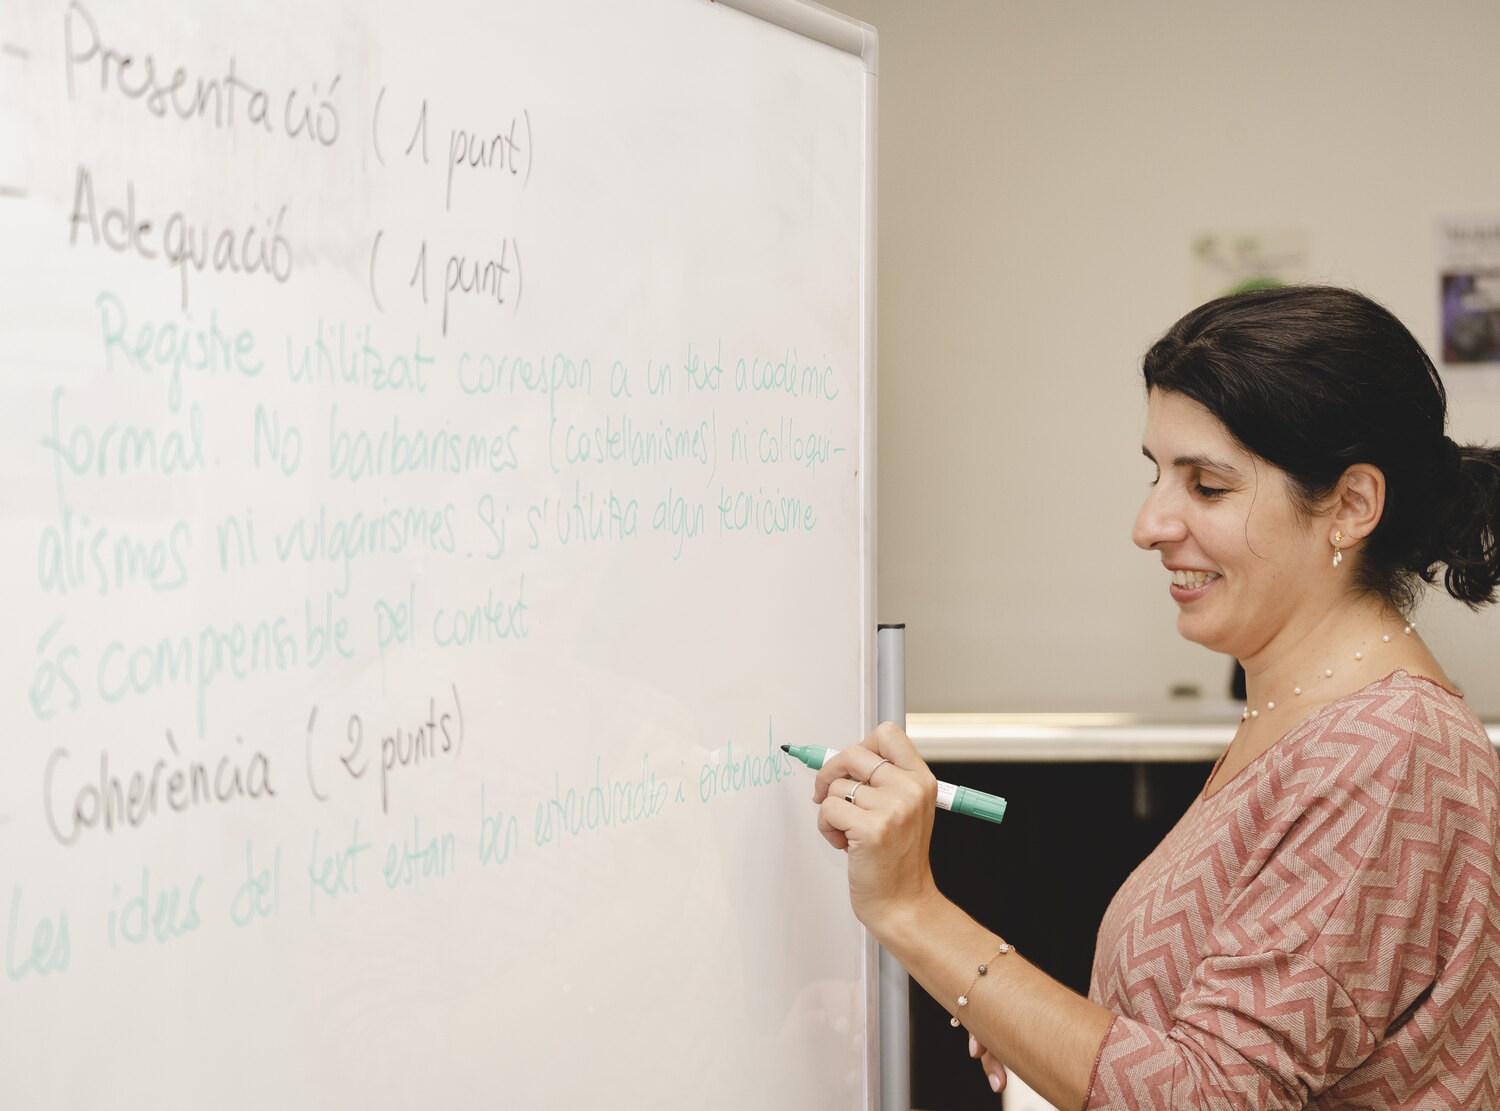 - Presentació (1 punt)
- Adequació (1 punt)
Registre utilitzat correspon a un text acadèmic
formal. No barbarismes (castellanismes) ni col·loqui-
alismes ni vulgarismes. Si s'utilitza algun tecnicisme
és comprensible pel context
- Coherència (2 punts)
Les idees del text estan ben estructurades i ordenades.